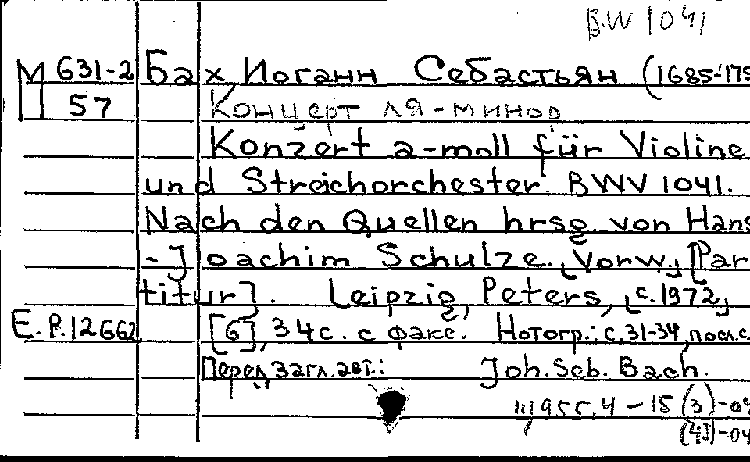 BW 1041
М 631-2 Бах Иоганн Себастьян (1685-175
П 57 Концерт ля-минор
Konzert a-moll für Violine
und Streichorchester BWV 1041.
Nach den Quellen hrsg. von Hans
-Joachim Schulze. [Vorw.] [Par
titur]. Leipzig, Peters, [c. 1972]
E.P.12662 [6], 34 с. с факс. Нотогр.: с. 31-34, посл. с.
Перед загл. авт.: Joh. Seb. Bach.
955,4-15 (3)-04